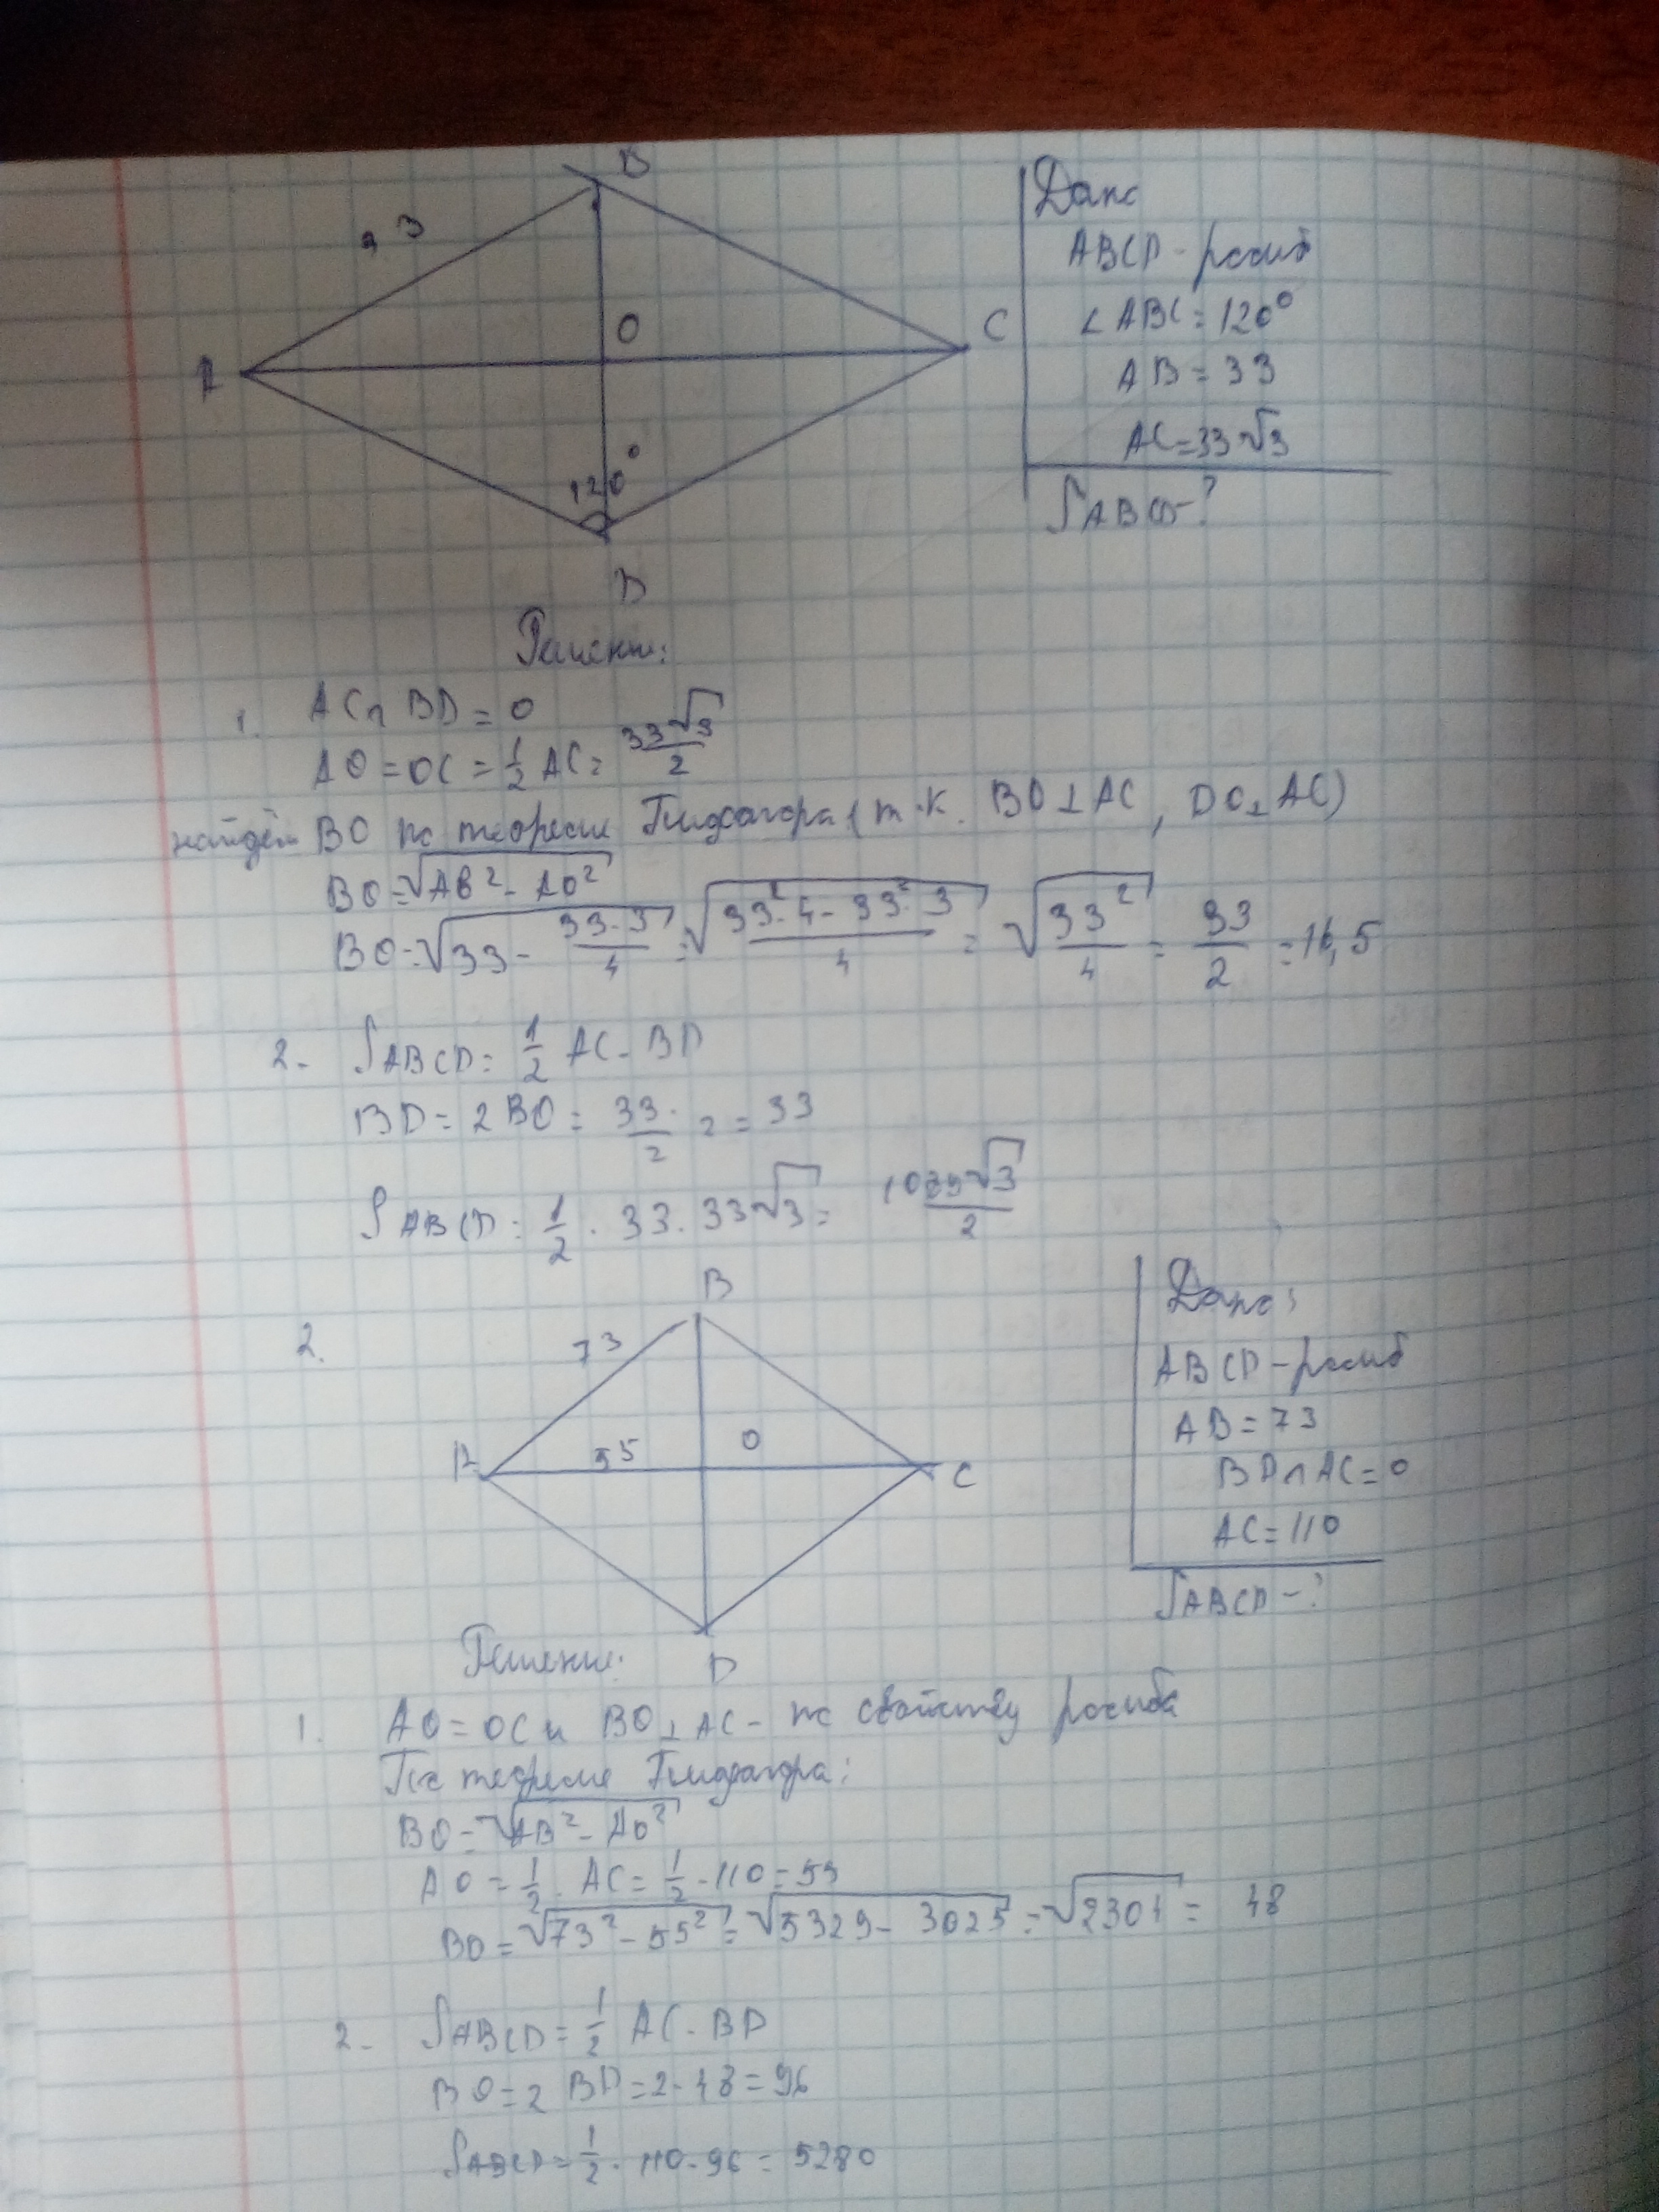 B
33
O
A
C
120°
D
Дано
ABCD - ромб
∠ABC = 120°
AB = 33
AC = 33√3
SABCD - ?
Решение:
1. AC ∩ BD = O
AO = OC = 1/2 AC = 33√3/2
найдём BO по теореме Пифагора (т.к. BO ⊥ AC, DO ⊥ AC)
BO = √(AB² - AO²)
BO = √(33 - 33·3/4) = √((33²·4 - 33²·3)/4) = √(33²/4) = 33/2 = 16,5
2. SABCD = 1/2 AC · BD
BD = 2BO = 33/2 · 2 = 33
SABCD = 1/2 · 33 · 33√3 = 1089√3/2
2.
B
73
A
55
O
C
D
Дано:
ABCD - ромб
AB = 73
BD ∩ AC = O
AC = 110
SABCD - ?
Решение:
1. AO = OC и BO ⊥ AC - по свойству ромба
По теореме Пифагора:
BO = √(AB² - AO²)
AO = 1/2 · AC = 1/2 · 110 = 55
BO = √(73² - 55²) = √(5329 - 3025) = √2304 = 48
2. SABCD = 1/2 AC · BD
BO = 2 BD = 2 · 48 = 96
SABCD = 1/2 · 110 · 96 = 5280